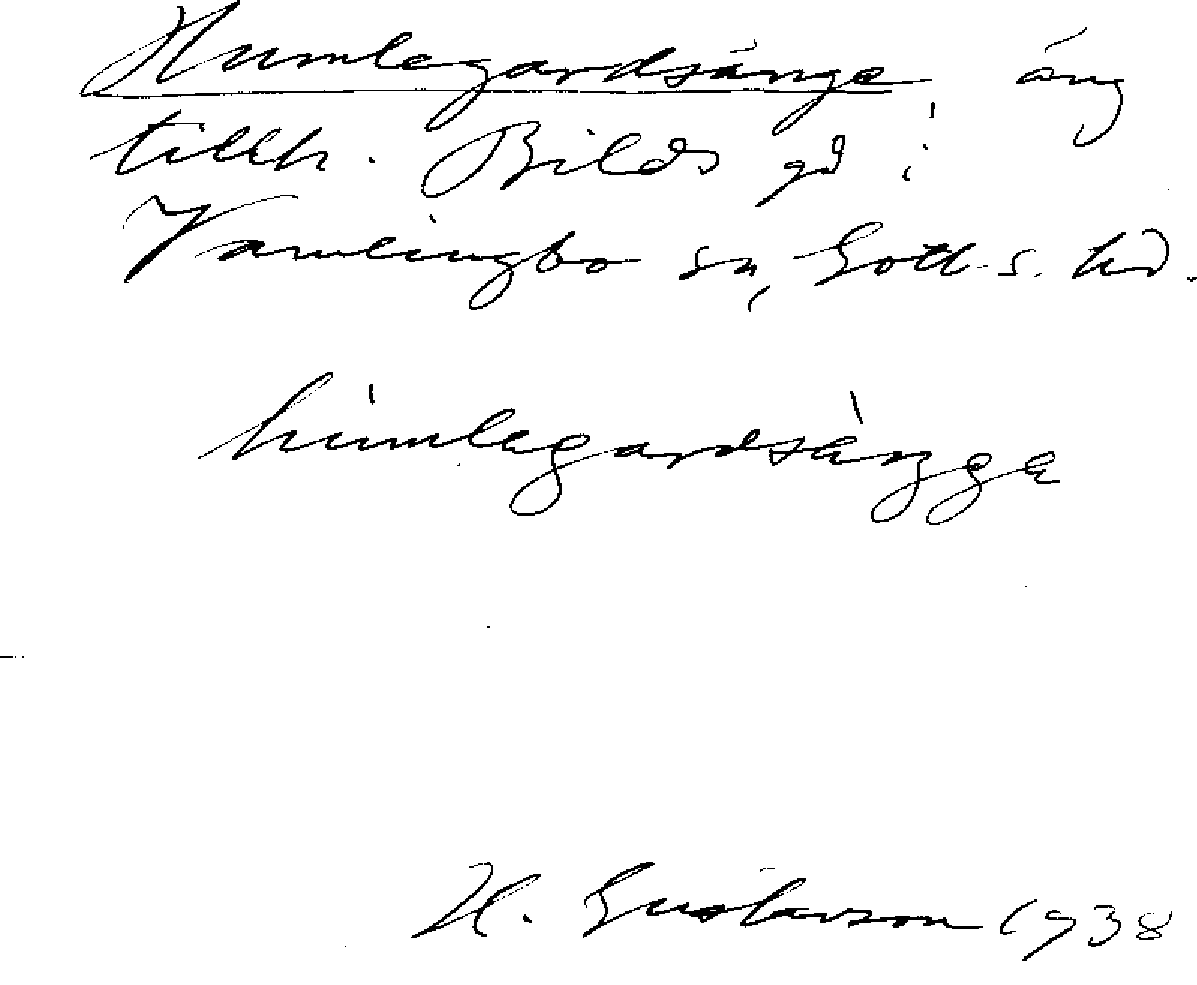 Humlegardsänge, äng
tillh. Bilds gd i
Vamlingbo sn, Gotl. s. hd.
humlegardsängge
H. Gustavson 1938